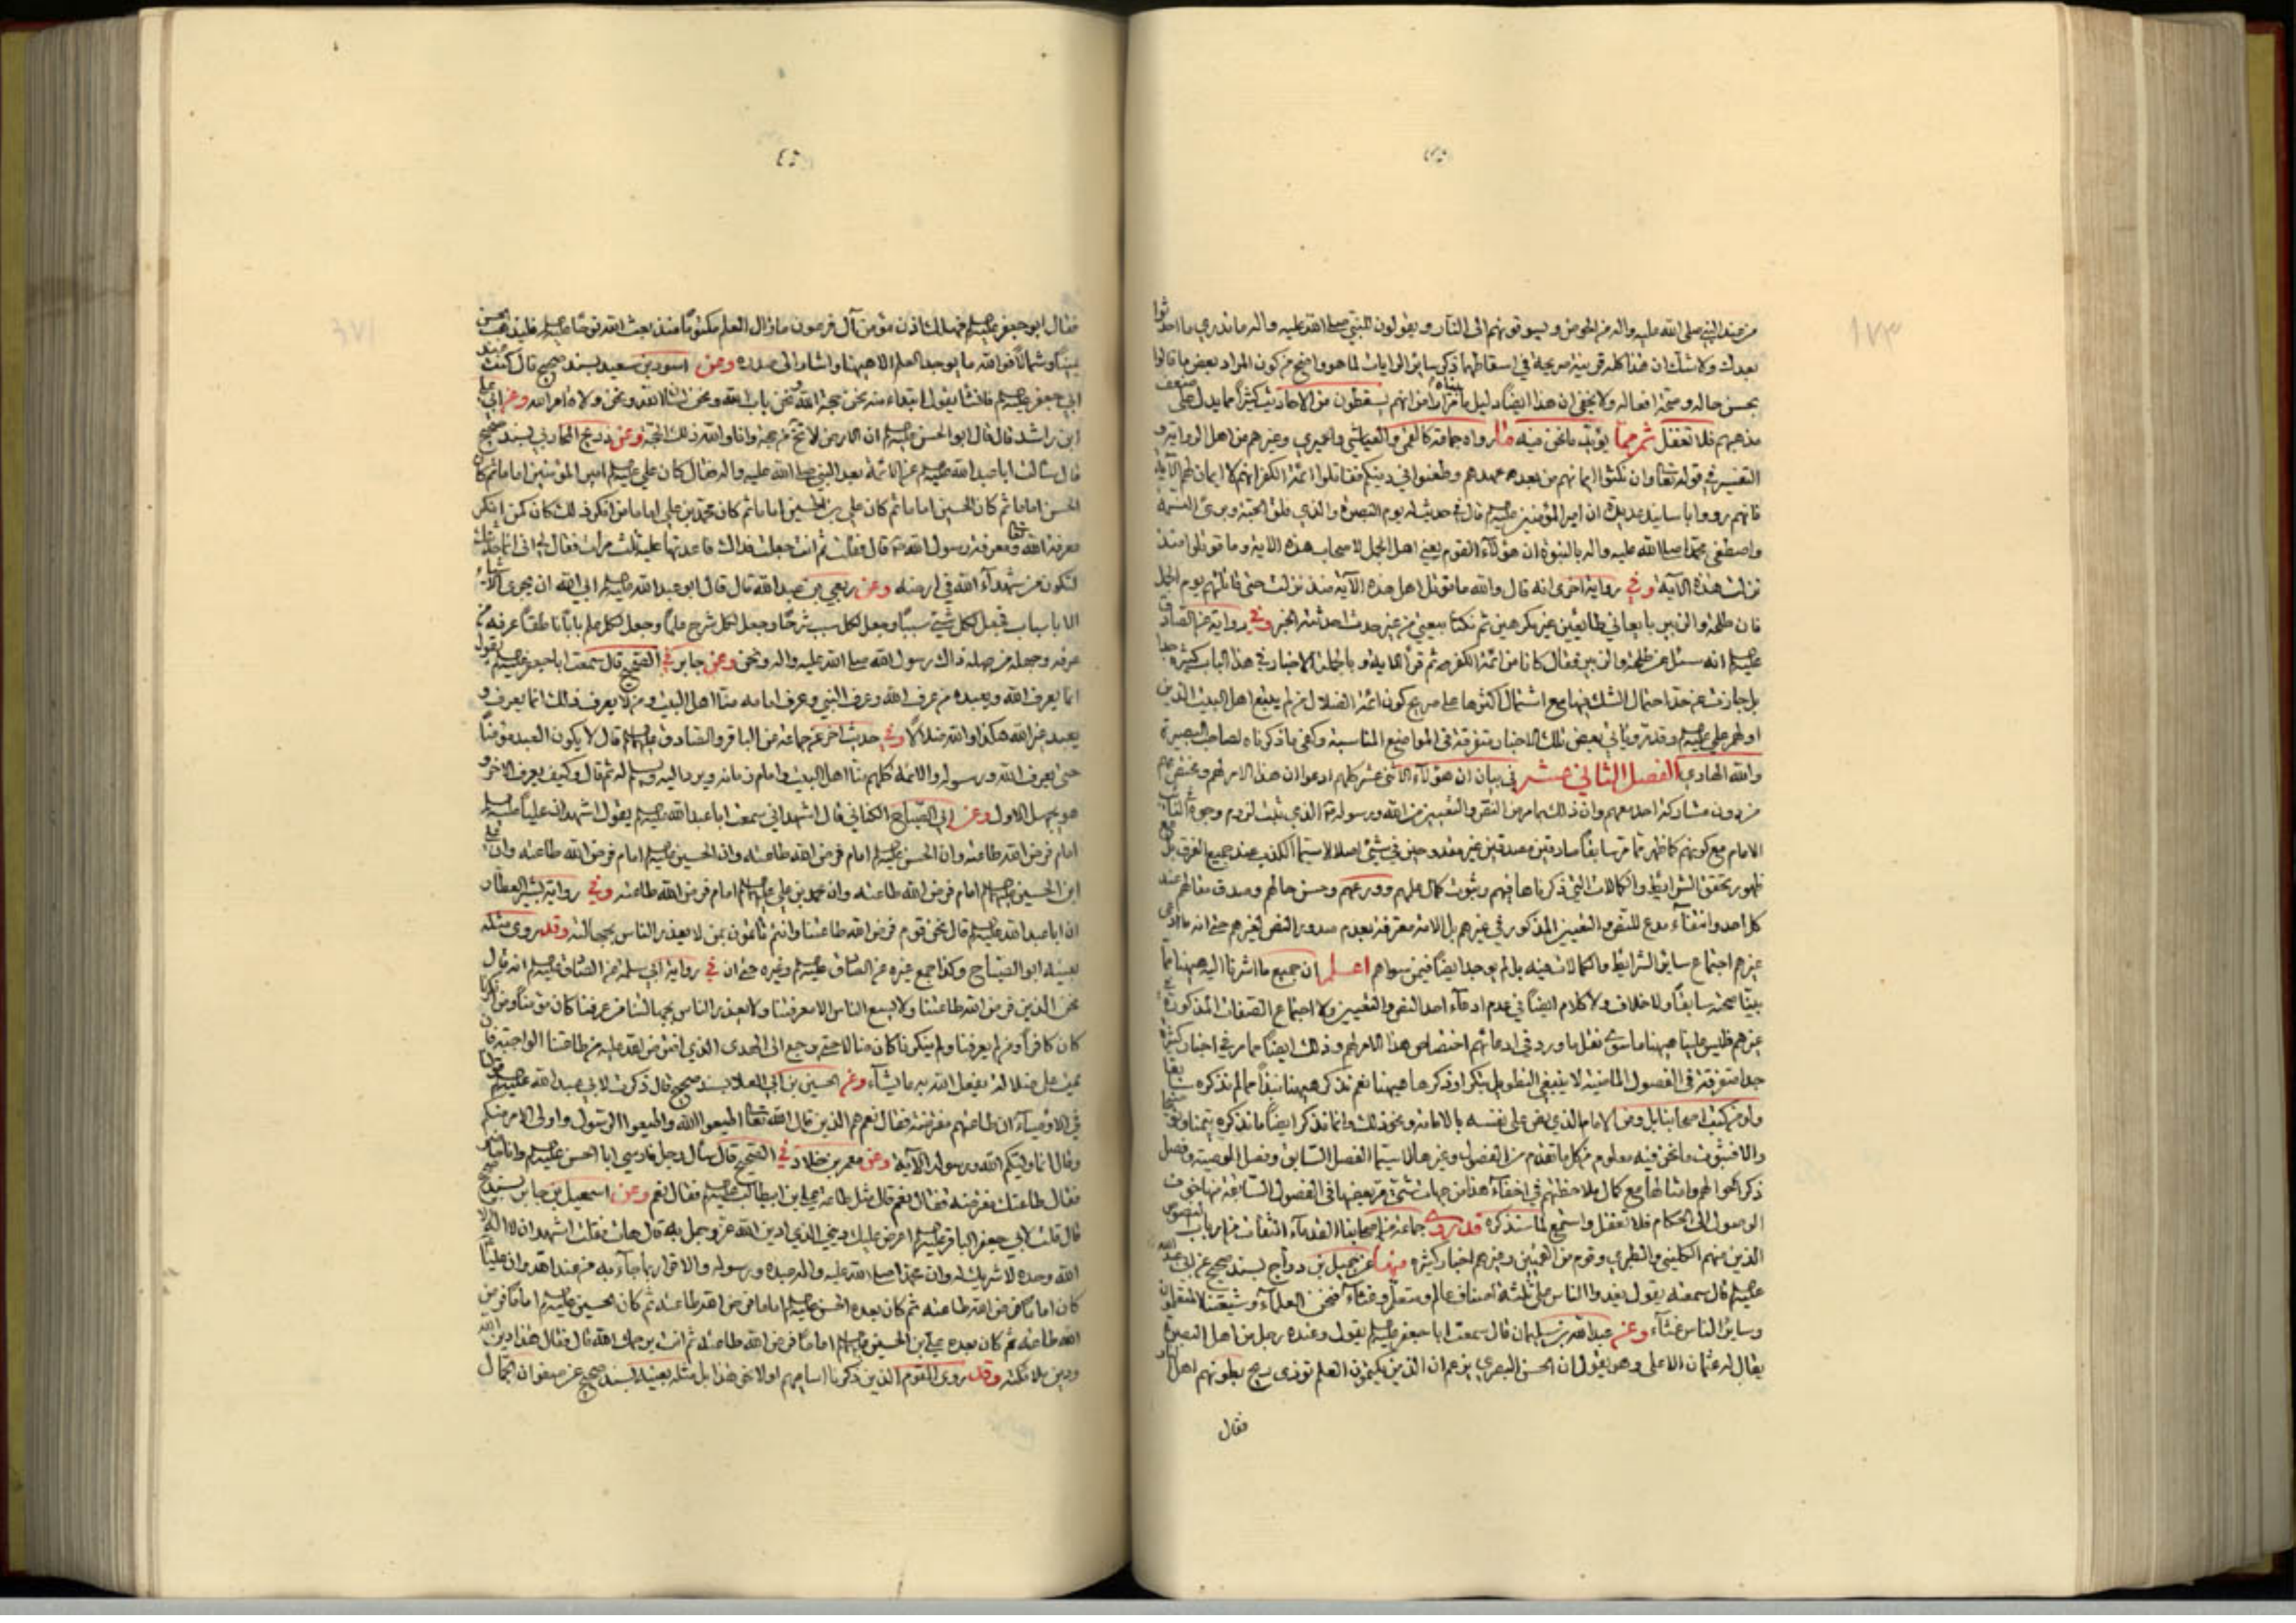 من عند النبي صلى الله عليه واله من الحوض ويسوقونهم الى النار ويقولون للنبي صلى الله عليه واله ما تدري ما احدثوا
بعدك ولا شك ان هذا كله قرينة صريحة في اسقاطهما ذكر ساير الروايات لما هو واضح من كون المراد بعض ما قالوا
بحسن حاله وصحة افعاله ولا يخفى ان هذا ايضا دليل ما قررناه من انهم يسقطون من الاحاديث كثيرا مما يدل على ضعف
مذهبهم فلا تغفل ثم مما يؤيد ما نحن فيه ما رواه جماعة كالقمي والعياشي والحميري وغيرهم من اهل الرواية و
التفسير في قوله تعالى وان نكثوا ايمانهم من بعد عهدهم وطعنوا في دينكم فقاتلوا ائمة الكفر انهم لا ايمان لهم الآية
فانهم رووا باسانيد عديدة ان امير المؤمنين عليه السلم قال في حديث له يوم البصرة والذي فلق الحبة وبرئ النسمة
واصطفى محمدا صلى الله عليه واله بالنبوة ان هؤلاء القوم يعني اهل الجمل لاصحاب هذه الاية وما قوتلوا منذ
نزلت هذه الآية وفي رواية اخرى انه قال والله ما قوتل اهل هذه الآية منذ نزلت حتى قاتلتهم يوم الجمل
فان طلحة والزبير بايعاني طائعين غير مكرهين ثم نكثا بيعتي من غير حدث احدثته الخبر وفي رواية عن الصادق
عليه السلم انه سئل عن طلحة والزبير فقال كانا من ائمة الكفر ثم قرأ الاية وبالجملة الاخبار في هذا الباب كثيرة جدا
بل جازت عن حد احتمال الشك فيها مع اشتمال اكثرها على صريح كون ائمة الضلال من لم يتبع اهل البيت الذين
اولهم علي عليه السلم وقد مر ويأتي بعض تلك الاخبار متفرقة في المواضع المناسبة وكفى ما ذكرناه لصاحب البصيرة
والله الهادي الفصل الثاني عشر في بيان ان هؤلاء الاثني عشر كلهم ادعوا ان هذا الامر لهم ومختص بهم
من دون مشاركة احد معهم وان ذلك بامر من النص والتعيين من الله ورسوله الذي ثبت لزوم وجوده في النائب
الامام مع كونهم كما ظهر مما مر سابقا صادقين مصدقين غير مقدوحين في شيئ اصلا لا سيما الكذب عند جميع الفرق بل مع
ظهور تحقق الشرائط والكمالات التي ذكرناها فيهم وثبوت كمال علمهم وورعهم وحسن حالهم وصدق مقالهم عند
كل احد وانتفاء مدع للنص والتعيين المذكور في غيرهم بل الامة معترفة بعدم صدور النص لغيرهم حتى انه ما ادعى
غيرهم اجتماع ساير الشرائط والكمالات فيه بل لم يوجد ايضا فيمن سواهم اعلم ان جميع ما اشرنا اليه هيهنا مما
بينا صحته سابقا ولا خلاف ولا كلام ايضا في عدم ادعاء احد النص والتعيين ولا اجتماع الصفات المذكورة في
غيرهم فليس علينا هيهنا ما سوى نقل ما ورد في ادعائهم اختصاص هذا الامر لهم وذلك ايضا مما مر في اخبار كثيرة
جدا متفرقة في الفصول الماضية لا ينبغي التطويل بتكرار ذكرها هيهنا نعم نذكر هيهنا نبذا مما لم نذكره سابقا
والا فثبوت ما نحن فيه معلوم من كل ما تقدم من الفصول وغيرها لا سيما الفصل السابق وفصل الوصية وفصل
ذكر احوالهم وامثالها مع كمال ملاحظتهم في اخفاء هذا من جهات شتى مر بعضها في الفصول السابقة منها خوف
الوصول الى الحكام فلا تغفل واستمع لما سنذكره قد روى جماعة من اصحابنا القدماء الثقات من ارباب النصوص
الذين منهم الكليني والطبري وقوم من القميين وغيرهم اخبار كثيرة منها عن جميل بن دراج بسند صحيح عن ابي عبد الله
عليه السلم قال سمعته يقول يغدوا الناس على ثلثة اصناف عالم ومتعلم وغثاء فنحن العلماء وشيعتنا المتعلمون
وساير الناس غثاء وعن عبد الله بن سليمان قال سمعت ابا جعفر عليه السلم يقول وعنده رجل من اهل البصرة
يقال له عثمان الاعمى وهو يقول ان الحسن البصري يزعم ان الذين يكتمون العلم تؤذي ريح بطونهم اهل النار
فقال
فقال ابو جعفر عليه السلم فهلك اذن مؤمن آل فرعون ما زال العلم مكتوما منذ بعث الله نوحا عليه السلم فليذهب الحسن
يمينا وشمالا فوالله ما يوجد العلم الا هيهنا واشار الى صدره وعن اسود بن سعيد بسند صحيح قال كنت عند
ابي جعفر عليه السلم فانشأ يقول ابتداء منه نحن حجة الله ونحن باب الله ونحن لسان الله ونحن ولاة امر الله وعن ابي
ابن راشد قال قال ابو الحسن عليه السلم ان الارض لا تخلو من حجة وانا والله ذلك الحجة وعن ذريح المحاربي بسند صحيح
قال سألت ابا عبد الله عليه السلم عن الائمة بعد النبي صلى الله عليه واله فقال كان علي عليه السلم امير المؤمنين اماما ثم كان
الحسن اماما ثم كان الحسين اماما ثم كان علي بن الحسين اماما ثم كان محمد بن علي اماما من انكر ذلك كان كمن انكر
معرفة الله تعالى ومعرفة رسول الله قال فقلت ثم انت جعلت فداك فاعدتها عليه ثلث مرات فقال لي اني انما حدثتك
لتكون من شهداء الله في ارضه وعن ربعي بن عبد الله قال قال ابو عبد الله عليه السلم ابى الله ان يجري الاشياء
الا باسباب فجعل لكل شيئ سببا وجعل لكل سبب شرحا وجعل لكل شرح علما وجعل لكل علم بابا ناطقا عرفه من
عرفه وجهله من جهله ذاك رسول الله صلى الله عليه واله ونحن وعن جابر في الصحيح قال سمعت ابا جعفر عليه السلم يقول
انما يعرف الله ويعبده من عرف الله وعرف النبي وعرف امامه منا اهل البيت ومن لا يعرف ذلك انما يعرف و
يعبد غير الله هكذا والله ضلالا وفي حديث اخر عن جماعة من الباقر والصادق عليهما السلم قال لا يكون العبد مؤمنا
حتى يعرف الله ورسوله والائمة كلهم منا اهل البيت وامام زمانه ويرد اليه ويسلم له ثم قال وكيف يعرف الاخر و
هو يجهل الاول وعن ابي الصباح الكناني قال اشهد اني سمعت ابا عبد الله عليه السلم يقول اشهد ان عليا عليه السلم
امام فرض الله طاعته وان الحسن عليه السلم امام فرض الله طاعته وان الحسين عليه السلم امام فرض الله طاعته وان علي
ابن الحسين عليهما السلم امام فرض الله طاعته وان محمد بن علي عليهما السلم امام فرض الله طاعته وفي رواية بشير العطار
ان ابا عبد الله عليه السلم قال نحن قوم فرض الله طاعتنا وانتم تأتمون بمن لا يعذر الناس بجهالته وقد روى مثله
بعينه ابو الصباح وكذا جمع غيره عن الصادق عليه السلم وغيره حتى ان في رواية ابي سلمة عن الصادق عليه السلم انه قال
نحن الذين فرض الله طاعتنا ولا يسع الناس الا معرفتنا ولا يعذر الناس بجهالتنا من عرفنا كان مؤمنا ومن انكرنا
كان كافرا ومن لم يعرفنا ولم ينكرنا كان ضالا حتى يرجع الى الهدى الذي افترض الله عليه من طاعتنا الواجبة فان
يمت على ضلالته يفعل الله به ما يشاء وعن الحسين بن ابي العلا بسند صحيح قال ذكرت لابي عبد الله عليه السلم قولنا
في الاوصياء ان طاعتهم مفترضة فقال نعم هم الذين قال الله تعالى اطيعوا الله واطيعوا الرسول واولى الامر منكم
وقال انما وليكم الله ورسوله الآية وعن معمر بن خلاد في الصحيح قال سأل رجل فارسي ابا الحسن عليه السلم
فقال طاعتك مفترضة فقال نعم قال مثل طاعة علي بن ابيطالب عليه السلم فقال نعم وعن اسمعيل بن جابر بسند صحيح
قال قلت لابي جعفر الباقر عليه السلم اعرض عليك ديني الذي ادين الله عز وجل به قال هات فقلت اشهد ان لا اله الا
الله وحده لا شريك له وان محمدا صلى الله عليه واله عبده ورسوله والاقرار بما جاء به من عند الله وان عليا
كان اماما فرض الله طاعته ثم كان بعده الحسن عليه السلم اماما فرض الله طاعته ثم كان الحسين عليه السلم اماما فرض
الله طاعته ثم كان بعده علي بن الحسين عليهما السلم اماما فرض الله طاعته ثم انت يرحمك الله قال فقال هذا دين الله
ودين ملائكته وقد روى القوم الذين ذكرنا اساميهم اولا نحو هذا بل مثله بعينه بسند صحيح عن صفوان الجمال